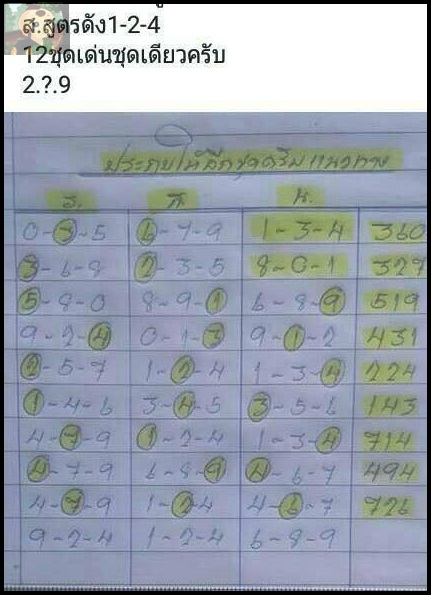 ส.สูตรดัง1-2-4
12ชุดเด่นชุดเดียวครับ
2.?.9
ร. ก. น.
0-3-5 6-7-9 1-3-4 360
3-6-8 2-3-5 8-0-1 327
5-8-0 8-9-1 6-8-9 519
9-2-4 0-1-3 9-1-2 431
2-5-7 1-2-4 1-3-4 224
1-4-6 3-4-5 3-5-6 143
4-7-9 1-2-4 1-3-4 714
4-7-9 6-8-9 4-6-7 494
4-7-9 1-2-4 4-6-7 726
9-2-4 1-2-4 6-8-9